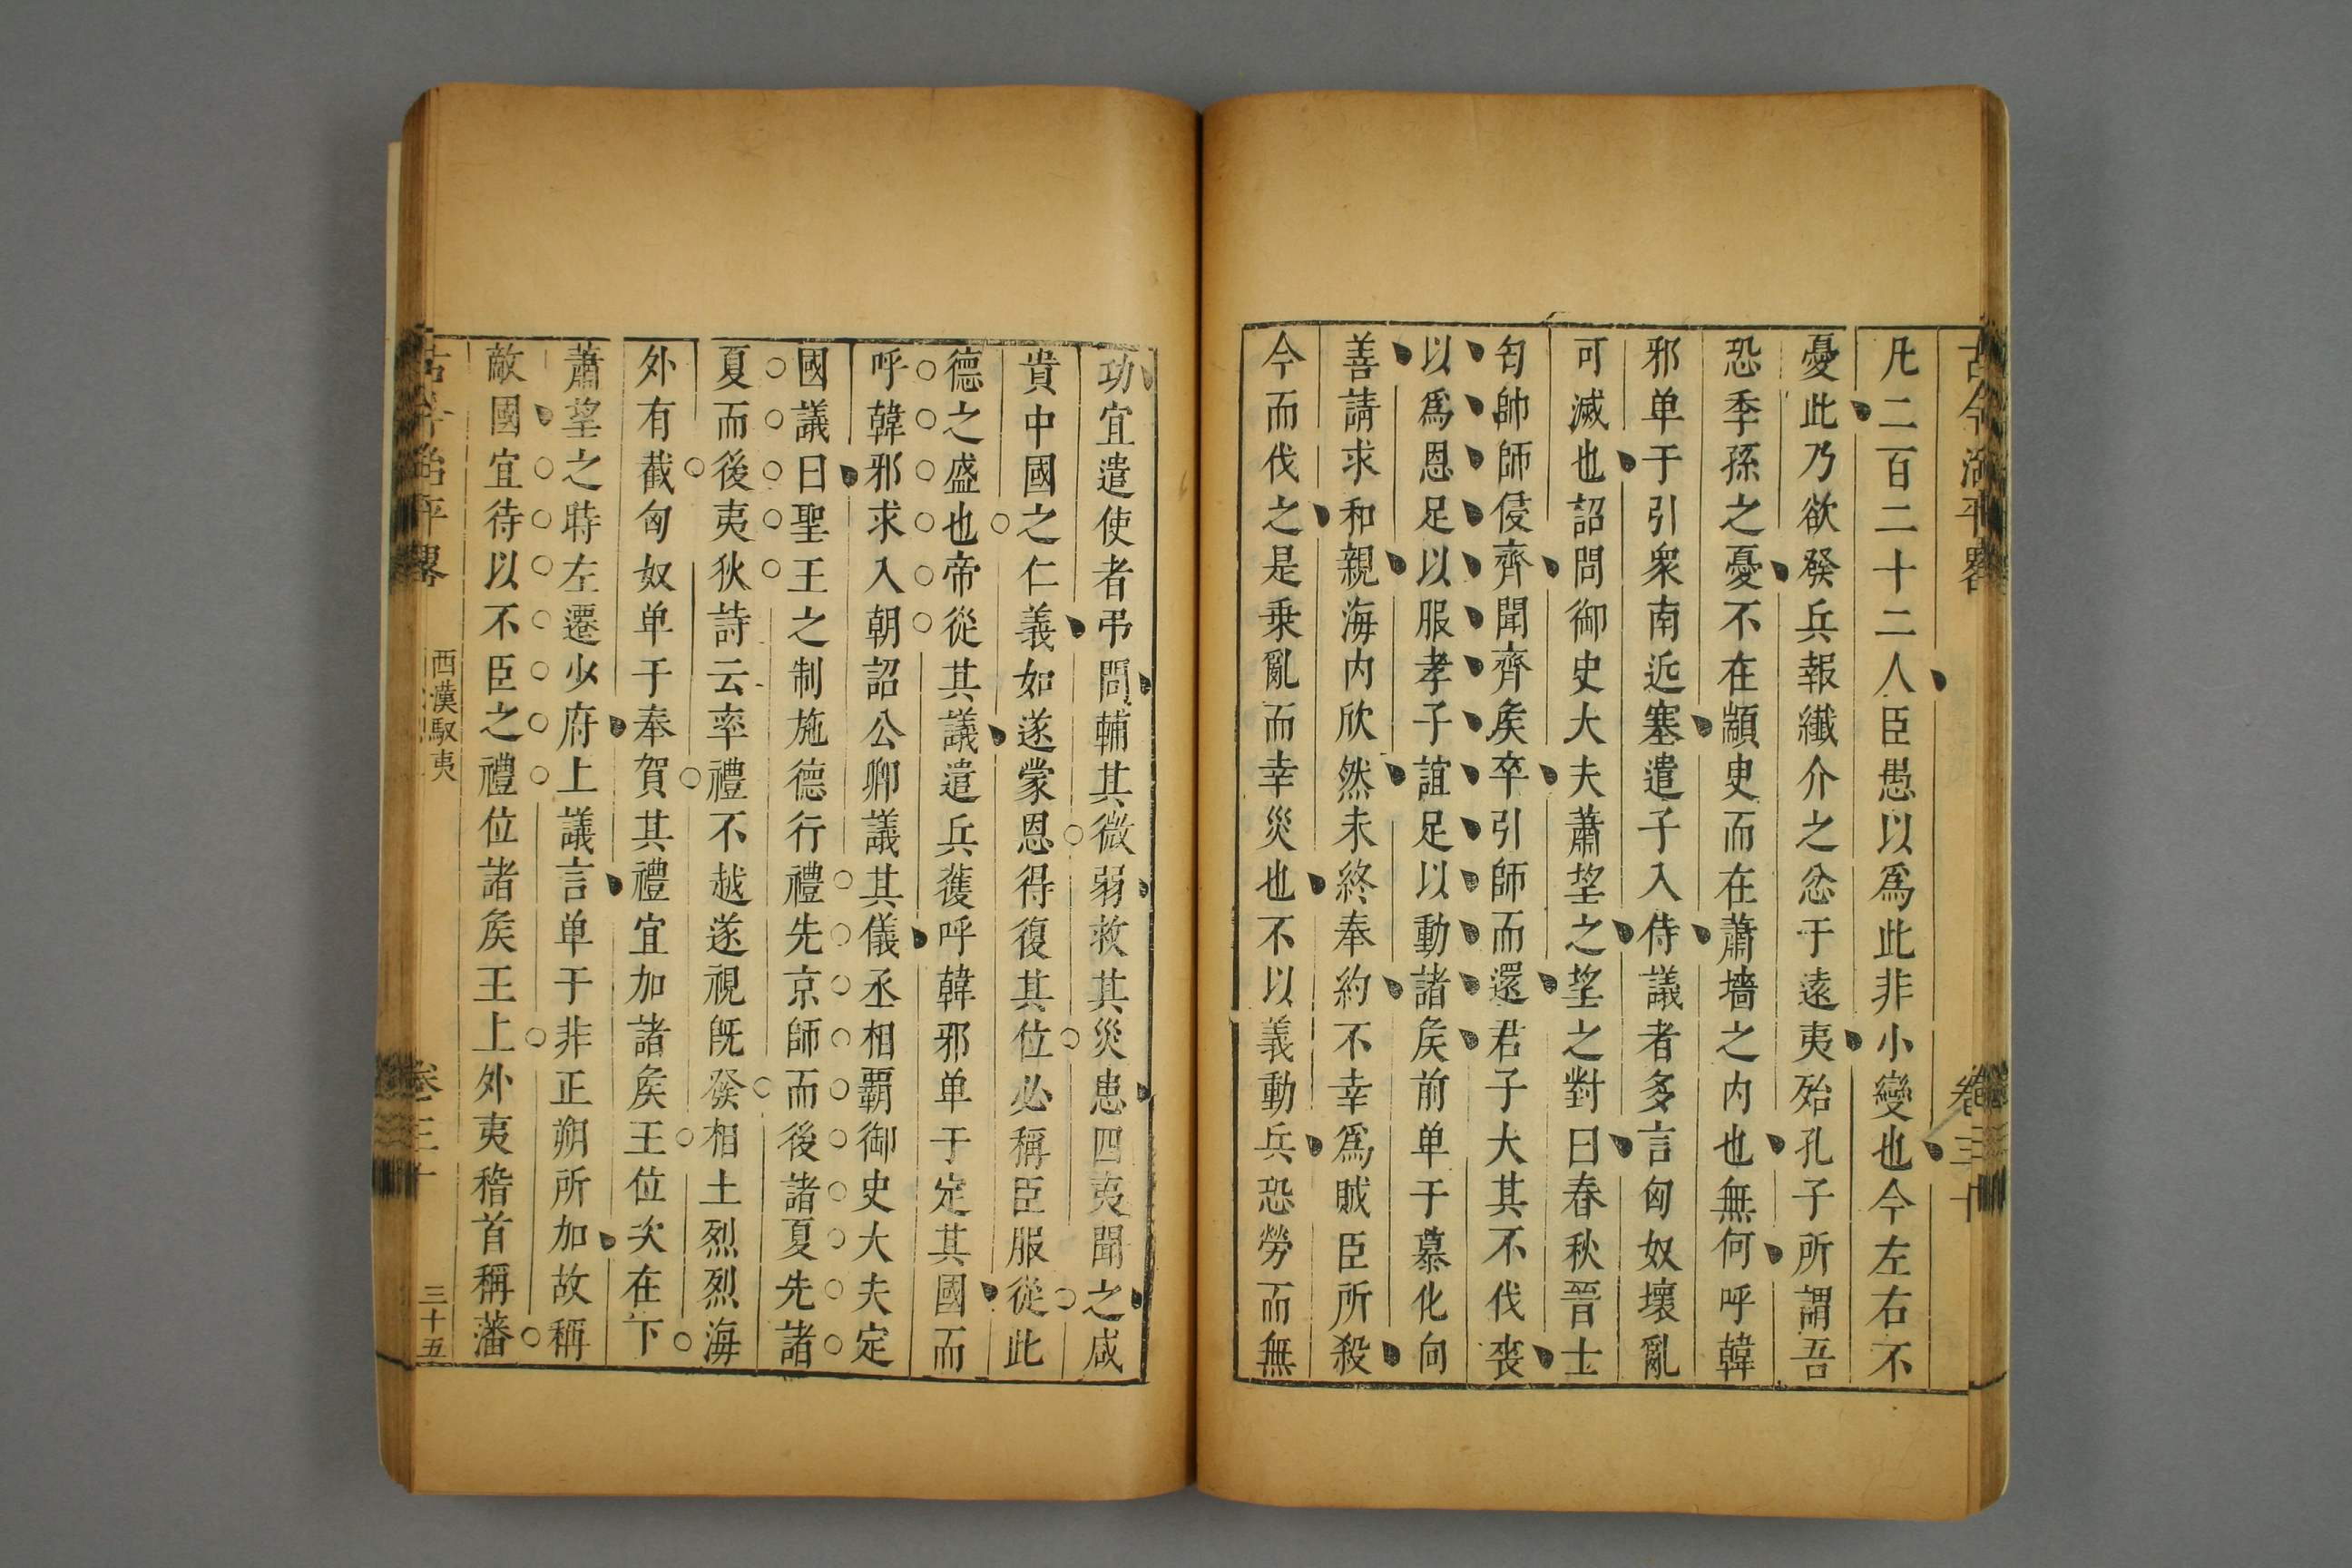 古今治平畧
卷三十
凡二百二十二人臣愚以爲此非小變也今左右不
憂此乃欲發兵報纖介之忿于遠夷殆孔子所謂吾
恐季孫之憂不在顓臾而在蕭墻之内也無何呼韓
邪单于引衆南近塞遣子入侍議者多言匈奴壞亂
可滅也詔問御史大夫蕭望之望之對曰春秋晉士
匄帥師侵齊聞齊矦卒引師而還君子大其不伐喪
以爲恩足以服孝子誼足以動諸矦前单于慕化向
善請求和親海内欣然未終奉約不幸爲賊臣所殺
今而伐之是乗亂而幸災也不以義動兵恐勞而無
功宜遣使者弔問輔其微弱救其災患四夷聞之咸
貴中國之仁義如遂蒙恩得復其位必稱臣服從此
德之盛也帝從其議遣兵護呼韓邪单于定其國而
呼韓邪求入朝詔公卿議其儀丞相覇御史大夫定
國議曰聖王之制施德行禮先京師而後諸夏先諸
夏而後夷狄詩云率禮不越遂視旣發相土烈烈海
外有截匈奴单于奉賀其禮宜加諸矦王位次在下
蕭望之時左遷少府上議言单于非正朔所加故稱
敵國宜待以不臣之禮位諸矦王上外夷稽首稱藩
古今治平畧
西漢馭夷
卷三十
三十五